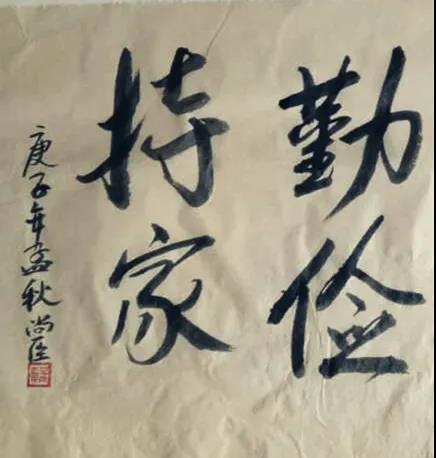 勤俭
持家
庚子年孟秋尚匡